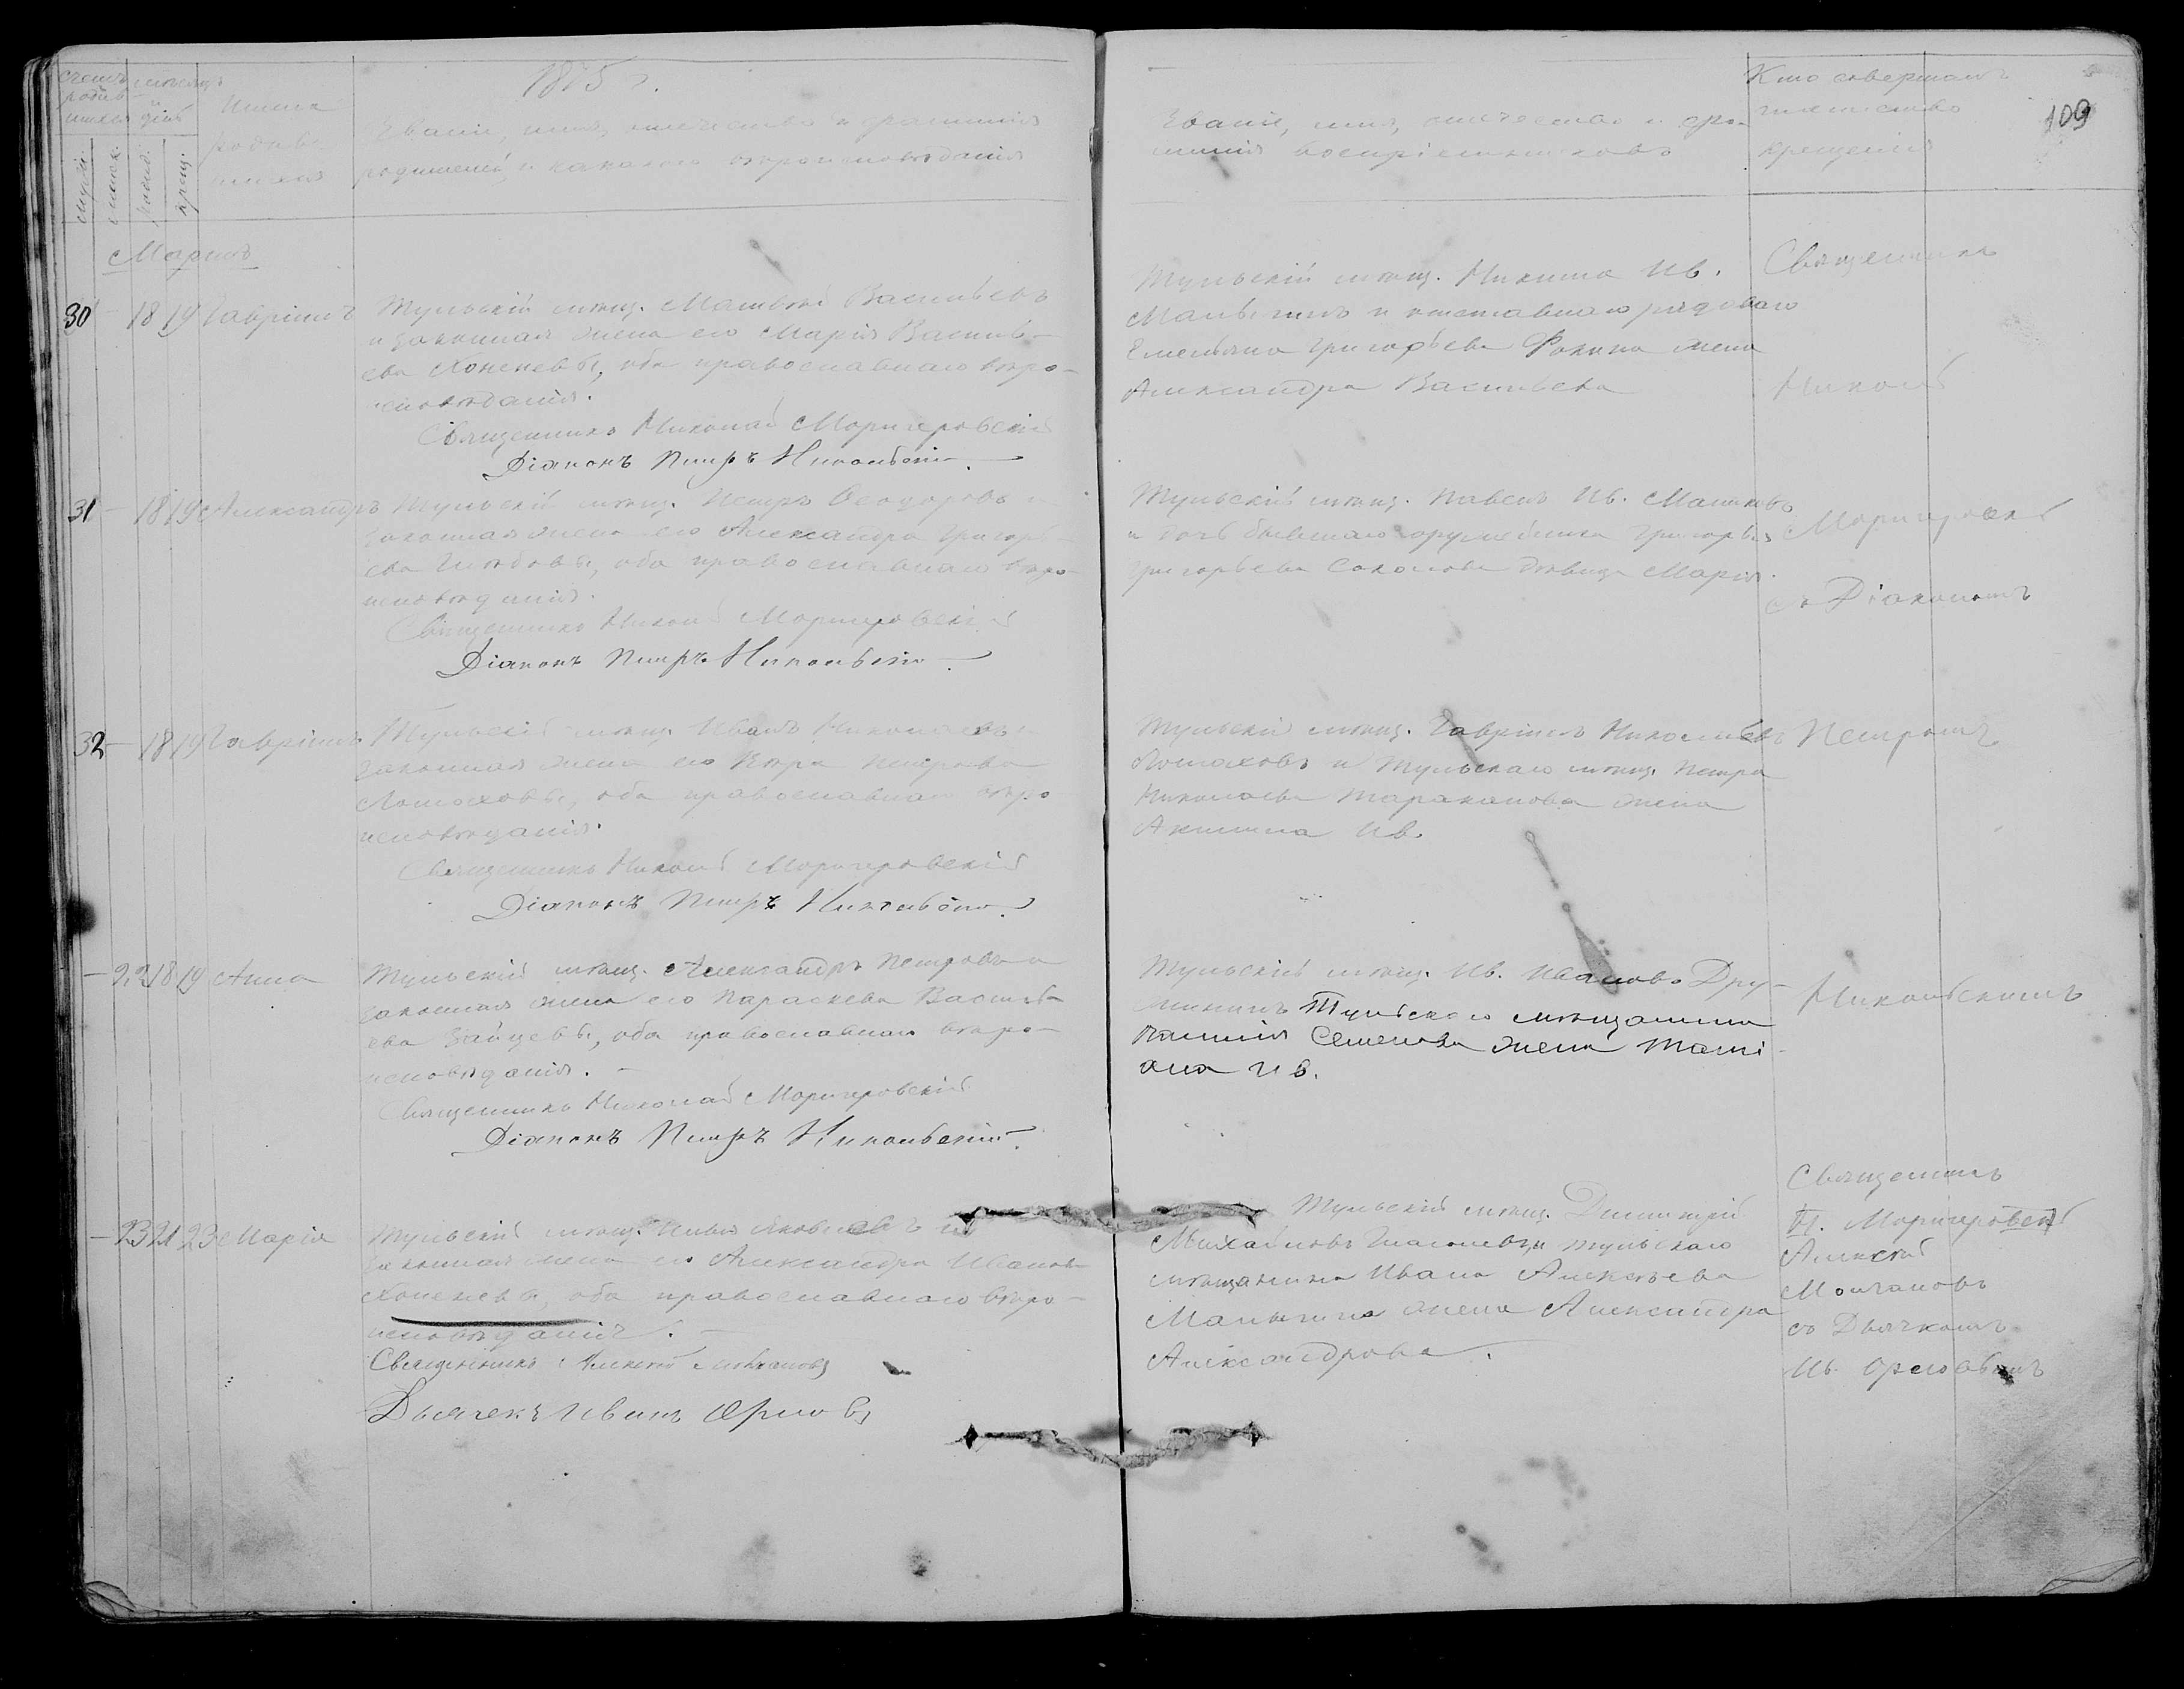 1875 г.
109
Счетъ родив-шихся
Мѣсяцъ и день
Имена родив-шихся
Званіе, имя, отчество и фамилія
родителей, и какаго вѣроисповѣданія
Званіе, имя, отчество и фа-
милія воспріемниковъ
Кто совершалъ
таинство
крещенія
мужск.
женск.
рожд.
крещ.
Мартъ
30 – 18 19 Гавріилъ
Тульскій мѣщ. Матвѣй Васильевъ
и законная жена его Марія Василь-
ева Конжевы, оба православнаго вѣро-
исповѣданія.
Священникъ Николай Моригеровскій
Діаконъ Петръ Никольскій.
Тульскій мѣщ. Никита Ив.
Малыгинъ и отставнаго рядоваго
Емельяна Григорьева Фокина жена
Александра Васильева
Священникъ
Николай
31 – 18 19 Александръ
Тульскій мѣщ. Петръ Ѳеодоровъ и
законная жена его Александра Григорь-
ева Глѣбовы, оба православнаго вѣро-
исповѣданія.
Священникъ Николай Моригеровскій
Діаконъ Петръ Никольскій.
Тульскій мѣщ. Павелъ Ив. Машковъ
и дочь бывшаго оружейника Григорья
Григорьева Соколова дѣвица Марія.
Моригеровскій
съ Діакономъ
32 – 18 19 Гавріилъ
Тульскій мѣщ. Иванъ Николаевъ и
законная жена его Вѣра Петрова
Ломаховы, оба православнаго вѣро-
исповѣданія.
Священникъ Николай Моригеровскій
Діаконъ Петръ Никольскій.
Тульскій мѣщ. Гавріилъ Николаевъ
Ломаховъ и Тульскаго мѣщ. Петра
Николаева Тараканова жена
Акилина Ив.
Петромъ
– 22 18 19 Анна
Тульскій мѣщ. Александръ Петровъ и
законная жена его Параскева Василь-
ева Зайцевы, оба православнаго вѣро-
исповѣданія. –
Священникъ Николай Моригеровскій
Діаконъ Петръ Никольскій.
Тульскій мѣщ. Ив. Ивановъ Дру-
Тульскаго мѣщанина
Семенова жена Тати-
ана Ив.
Никольскимъ
– 23 21 23 Марія
Тульскій мѣщ. Яковлевъ и
законная жена его Александра Иванова
Конжевы, оба православнаго вѣро-
исповѣданія. –
Священникъ Алексѣй Молчановъ
Дьячекъ Иванъ Орловъ
Тульскій мѣщ. Димитрій
Михайловъ и Тульскаго
мѣщанина Ивана Алексѣева
Малыгина жена Александра
Александрова.
Священникъ
Н. Моригеровскій
Алексѣй
Молчановъ
съ Дьячкомъ
Ив. Орловымъ